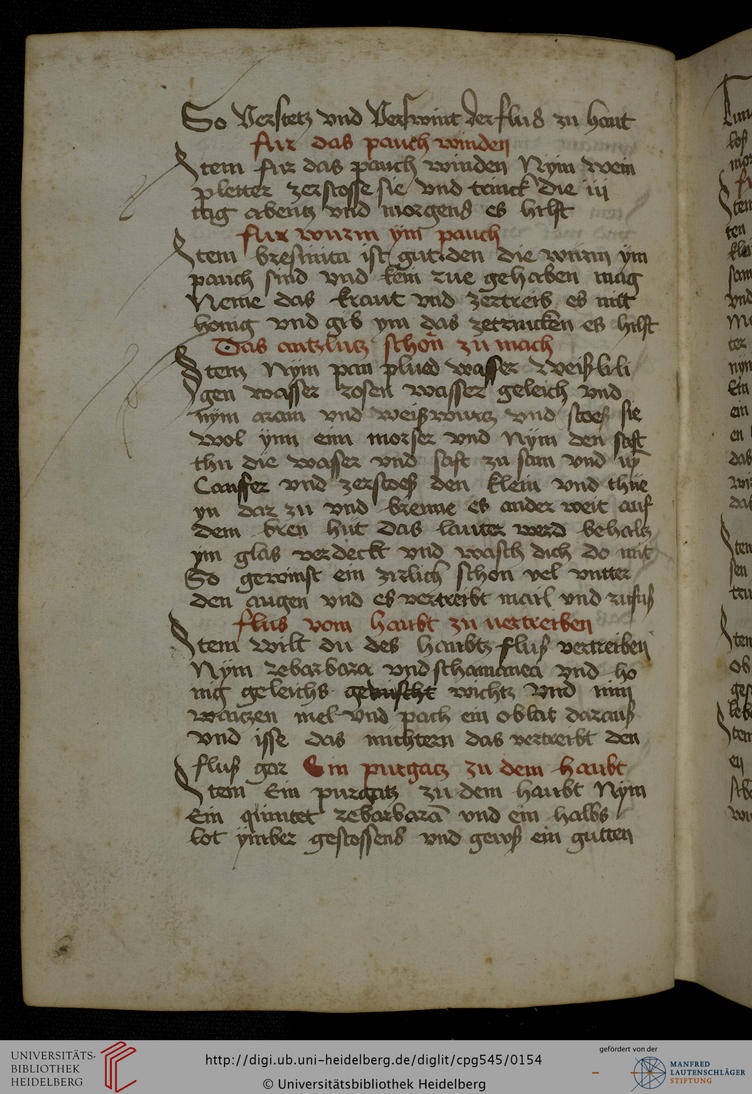 So Verstetz vnd Verswint der flus zu hant
fur das pauch winden
Item fur das pauch winden Nym wein
pletter zerstosse sie vnd trinck die iii
tag abentz vnd morgens es hilft
fur wurm ym pauch
Item ist gut den die wurm ym
pauch sind vnd kein rue gehaben mag
Neme das kraut vnd zertreib es mitt
honig vnd gib ym das zetrincken es hilft
Das antzlutz schon zu mach
Item Nym pan plued wasser weiß lili
gen wasser rosen wasser geleich vnd
nym aran vnd weißwurtz vnd stoß sie
wol ynn eim morser vnd Nym den saft
thu die wasser vnd saft zu sam vnd
Canffer vnd zerstoß den klein vnd thue
yn dar zu vnd brenne es ander weit auf
dem bren hut das lauter werd behaltz
ym glas verdeckt vnd wasch dich do mit
So gewinst ein zirlich schon vel vntter
den augen vnd es vertreibt mail vnd
flus vom haubt zu vertreiben
Item wilt du des haubtz fluß vertreiben
Nym rebarbara vnd schamanea vnd ho
nig geleichs wichtz vnd nim
waiczen mel vnd pach ein oblat darauß
vnd isse das nuchtern das vertreibt den
fluß gar Ein purgatz zu dem haubt
Item Ein purgatz zu dem haubt Nym
Ein quintet rebarbara vnd ein halbs
lot ymber gestossens vnd gewß ein gutten
UNIVERSITÄTS-
BIBLIOTHEK
HEIDELBERG
http://digi.ub.uni-heidelberg.de/diglit/cpg545/0154
© Universitätsbibliothek Heidelberg
gefördert von der
MANFRED
LAUTENSCHLÄGER
STIFTUNG